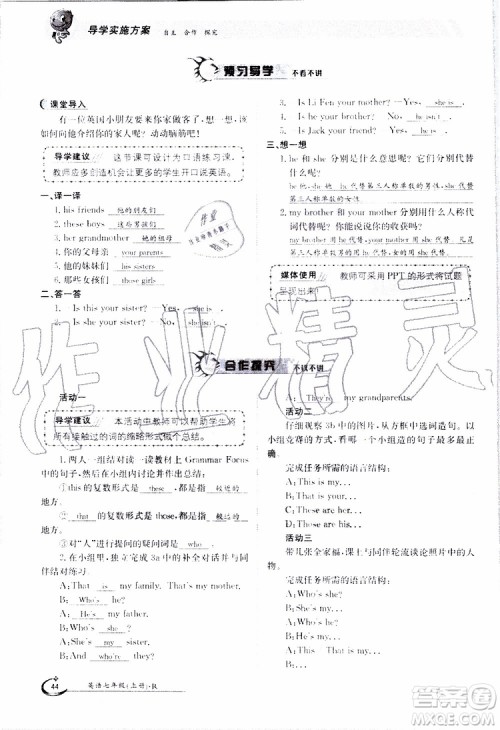 导学实施方案 自主 合作 探究
预习导学 不看不讲
课堂导入
有一位英国小朋友要来你家做客,想一想,该
如何向他介绍你的家人呢?动动脑筋吧!
导学建议 这节课可设计为口语练习课,
教师应多创造机会让更多的学生开口说英语。
一、译一译
1. his friends 他的朋友们
2. these boys 这些男孩们
3. her grandmother 她的祖母
4. 你的父母亲 your parents
5. 他的妹妹们 his sisters
6. 那些女孩们 those girls
二、答一答
1. Is this your sister? Yes,
2. Is she your sister? No,
3. Is Li Fen your mother? Yes, she is.
4. Is he your brother? No,
5. Is Jack your friend? Yes, he is.
三、想一想
1. he 和 she 分别是什么意思呢?它们分别代替
什么呢?
he 他,代替第三人称单数的男性,she 她,代替
第三人称单数的女性。
2. my brother 和 my mother 分别用什么人称代
词代替呢?你能说说原因吗?
my brother 用 he 代替,my mother 用 she 代替。
媒体使用 教师可采用 PPT 的形式将试题
呈现出来!
合作探究 不议不讲
活动一
导学建议 本活动中教师可以帮助学生将
所有接触过的词的缩略形式概个总结。
1. 两人一组结对读一读教材上 Grammar Focus
中的句子,然后在小组内讨论并作出总结:
①this 的复数形式是 these ,都是指 较近的
地方。
②that 的复数形式是 those,都是指 较远的
地方。
③对“人”进行提问的疑问词是 who 。
2. 在小组里,独立完成 3a 中的补全对话并与同
伴结对练习。
A:That is my family. That's my mother.
B:Who's he?
A:He's my brother.
B:Who's she?
A:She's my sister.
B:And who're they?
A:They're my grandparents.
活动二
仔细观察 3b 中的图片,从方框中选词造句。以
小组竞赛的形式,看一看哪一个小组造的句子最正
确。
完成任务所需的语言结构:
A:This is my...
B:These are my...
C:These are her...
D:This is his...
活动三
带几张全家福,来与同伴轮流谈论照片中的人
物。
完成任务所需的语言结构:
A:Who's she?
B:She's my...
A:Who's he?
B:He's my...
44 英语七年级(上册)·R
作业精灵